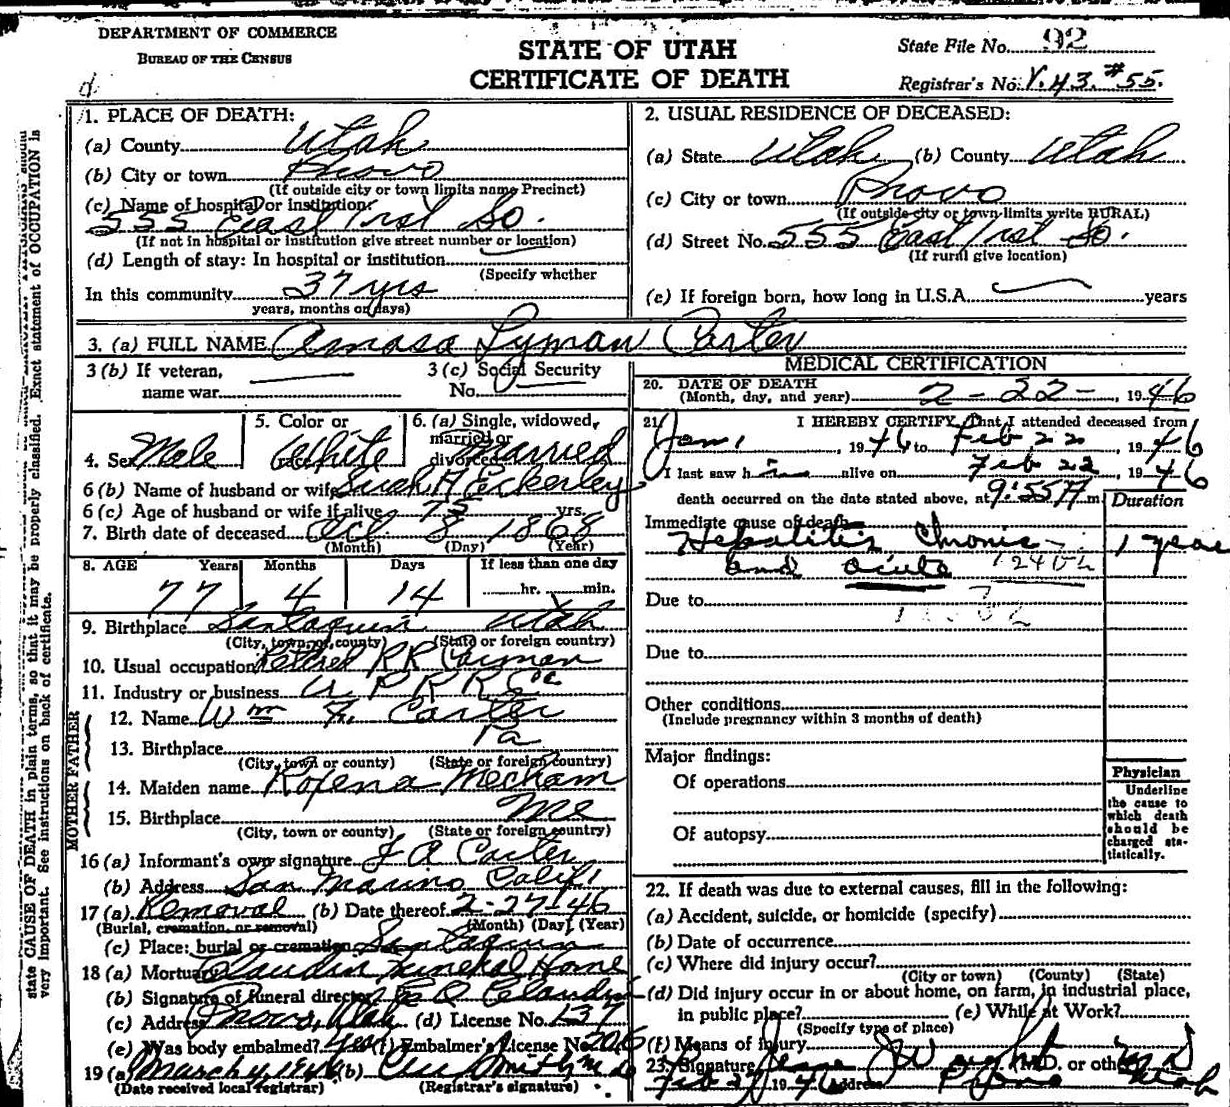 DEPARTMENT OF COMMERCE
BUREAU OF THE CENSUS
STATE OF UTAH
CERTIFICATE OF DEATH
State File No. 92
Registrar's No. V.43. #55.
state CAUSE OF DEATH in plain terms, so that it may be properly classified. Exact statement of OCCUPATION is
very important. See instructions on back of certificate.
1. PLACE OF DEATH:
(a) County Utah
(b) City or town Provo
(If outside city or town limits name Precinct)
(c) Name of hospital or institution
555 East 1rst So.
(If not in hospital or institution give street number or location)
(d) Length of stay: In hospital or institution
(Specify whether
In this community 37 yrs
years, months or days)
2. USUAL RESIDENCE OF DECEASED:
(a) State Utah (b) County Utah
(c) City or town Provo
(If outside city or town limits write RURAL)
(d) Street No. 555 East 1rst So.
(If rural give location)
(e) If foreign born, how long in U.S.A. years
3. (a) FULL NAME Amasa Lyman Carter
3 (b) If veteran,
name war
3 (c) Social Security
No.
4. Sex Male
5. Color or
race White
6. (a) Single, widowed,
married or
divorced Married
6 (b) Name of husband or wife
6 (c) Age of husband or wife if alive 75 yrs.
7. Birth date of deceased Oct 8 1868
(Month) (Day) (Year)
8. AGE Years Months Days If less than one day
77 4 14 hr. min.
9. Birthplace Santaquin Utah
(City, town, or county) (State or foreign country)
10. Usual occupation Retired RR Carman
11. Industry or business U P R R Co
MOTHER FATHER
12. Name Wm F. Carter
13. Birthplace Pa
(City, town or county) (State or foreign country)
14. Maiden name Roxena Mecham
15. Birthplace Me
(City, town or county) (State or foreign country)
16 (a) Informant's own signature J A Carter
(b) Address San Marino Calif.
17 (a) Removal (b) Date thereof 2-27-46
(Burial, cremation, or removal) (Month) (Day) (Year)
(c) Place: burial or cremation Santaquin
18 (a) Mortuary Claudin Funeral Home
(b) Signature of funeral director Claudin
(c) Address Provo, Utah (d) License No. 137
(e) Was body embalmed? Yes (f) Embalmer's License No. 206
19 (a) March 1946 (b)
(Date received local registrar) (Registrar's signature)
MEDICAL CERTIFICATION
20. DATE OF DEATH
(Month, day, and year) 2-22-, 1946
21. I HEREBY CERTIFY, That I attended deceased from
Jan, 1946 to Feb 22 1946
I last saw him alive on Feb 22, 1946
death occurred on the date stated above, at 9:55 m
Duration
Immediate cause of death
Hepatitis Chronic - 1 year
and acute 124 b 2
Due to
Due to
Other conditions
(Include pregnancy within 3 months of death)
Major findings:
Of operations
Of autopsy
Physician
Underline
the cause to
which death
should be
charged sta-
tistically.
22. If death was due to external causes, fill in the following:
(a) Accident, suicide, or homicide (specify)
(b) Date of occurrence
(c) Where did injury occur?
(City or town) (County) (State)
(d) Did injury occur in or about home, on farm, in industrial place,
in public place? (e) While at Work?
(Specify type of place)
(f) Means of injury
23. Signature (M.D. or other) MD
Feb 27 1946 Address Provo Utah